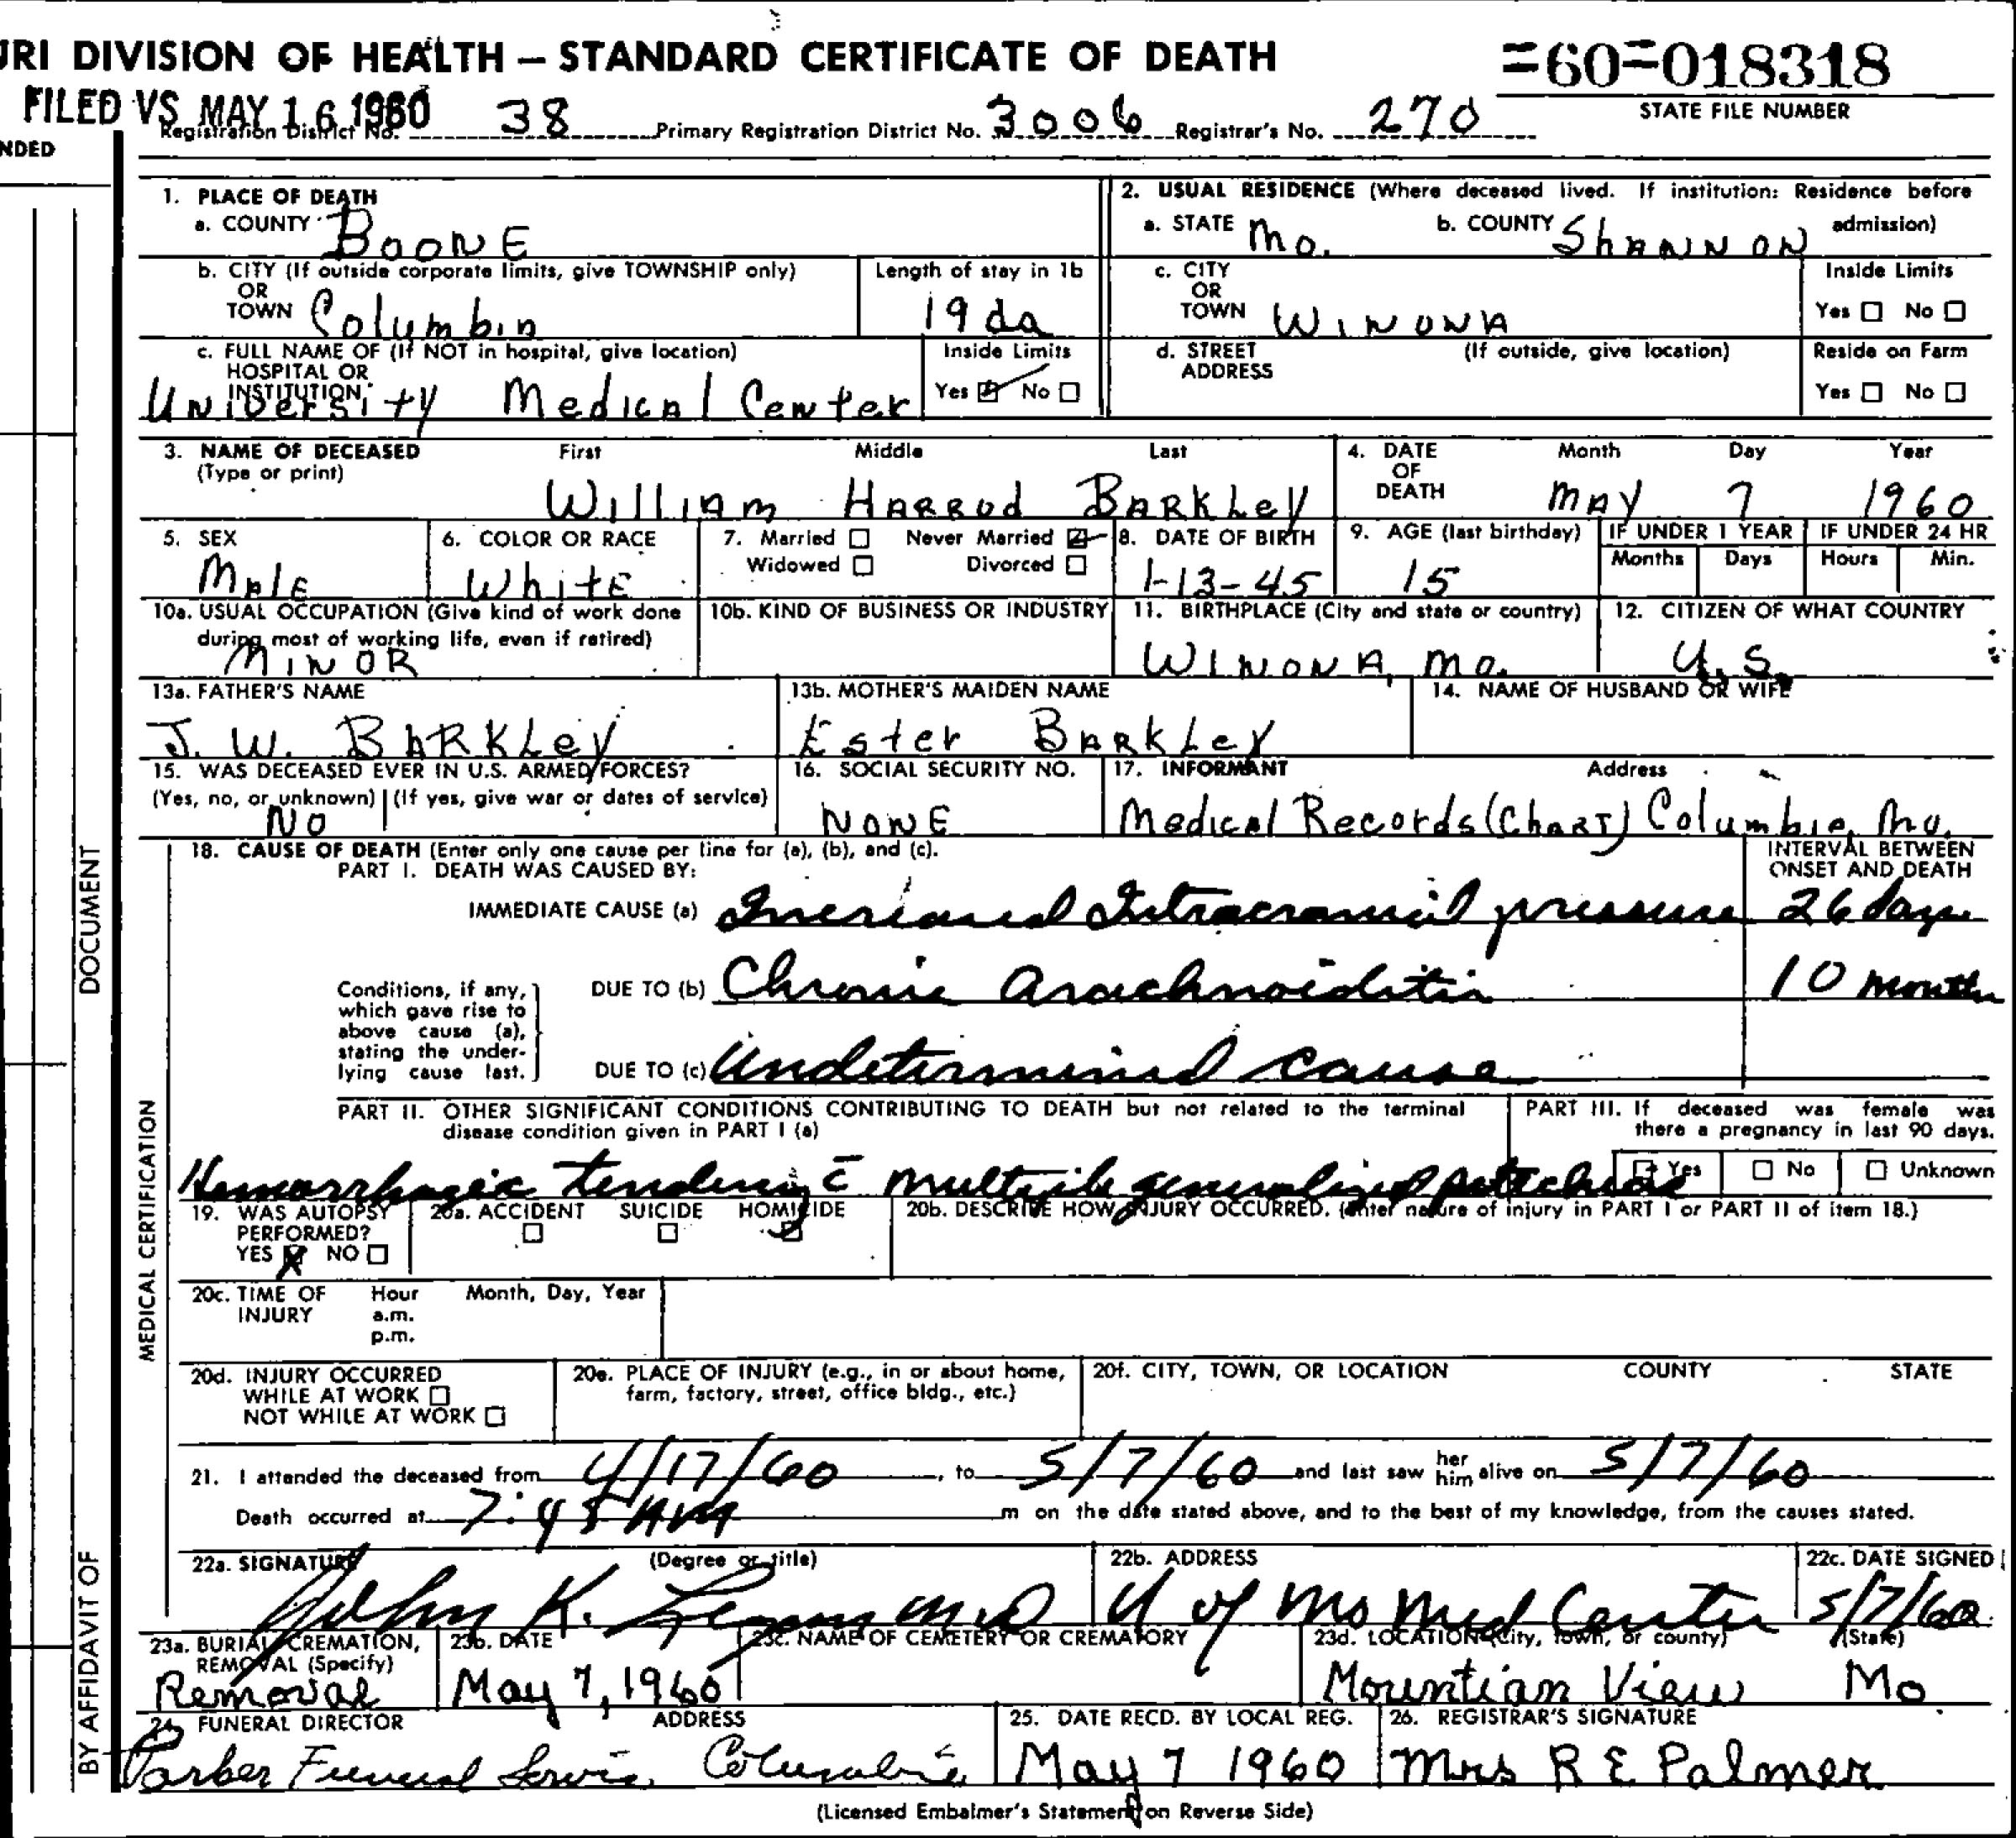 URI DIVISION OF HEALTH – STANDARD CERTIFICATE OF DEATH
=60=018318
STATE FILE NUMBER
FILED VS MAY 16 1960
Registration District No. 38 Primary Registration District No. 3006 Registrar's No. 270
NDED
1. PLACE OF DEATH
a. COUNTY BOONE
2. USUAL RESIDENCE (Where deceased lived. If institution: Residence before admission)
a. STATE Mo. b. COUNTY ShANNON
b. CITY (If outside corporate limits, give TOWNSHIP only) OR TOWN Columbia
Length of stay in 1b 19 da
c. CITY OR TOWN WINONA
Inside Limits Yes ☐ No ☐
c. FULL NAME OF (If NOT in hospital, give location) HOSPITAL OR INSTITUTION University Medical Center
Inside Limits Yes ☑ No ☐
d. STREET ADDRESS (If outside, give location)
Reside on Farm Yes ☐ No ☐
3. NAME OF DECEASED (Type or print) First Middle Last
William HARROD BARKLEY
4. DATE OF DEATH Month Day Year
MAY 7 1960
5. SEX Male
6. COLOR OR RACE White
7. Married ☐ Never Married ☑ Widowed ☐ Divorced ☐
8. DATE OF BIRTH 1-13-45
9. AGE (last birthday) 15
IF UNDER 1 YEAR Months Days
IF UNDER 24 HR Hours Min.
10a. USUAL OCCUPATION (Give kind of work done during most of working life, even if retired) MINOR
10b. KIND OF BUSINESS OR INDUSTRY
11. BIRTHPLACE (City and state or country) WINONA, Mo.
12. CITIZEN OF WHAT COUNTRY U.S.
13a. FATHER'S NAME J. W. BARKLEY
13b. MOTHER'S MAIDEN NAME Ester BARKLEY
14. NAME OF HUSBAND OR WIFE
15. WAS DECEASED EVER IN U.S. ARMED FORCES? (Yes, no, or unknown) (If yes, give war or dates of service) NO
16. SOCIAL SECURITY NO. NONE
17. INFORMANT Address
Medical Records (Chart) Columbia, Mo.
18. CAUSE OF DEATH (Enter only one cause per line for (a), (b), and (c).
PART I. DEATH WAS CAUSED BY:
INTERVAL BETWEEN ONSET AND DEATH
IMMEDIATE CAUSE (a) Increased Intracranial pressure 26 days
Conditions, if any, which gave rise to above cause (a), stating the underlying cause last.
DUE TO (b) Chronic Arachnoiditis 10 months
DUE TO (c) Undetermined cause
PART II. OTHER SIGNIFICANT CONDITIONS CONTRIBUTING TO DEATH but not related to the terminal disease condition given in PART I (a)
Hemorrhagic tendency c̄ multiple generalized petechiae
PART III. If deceased was female was there a pregnancy in last 90 days.
☐ Yes ☐ No ☐ Unknown
19. WAS AUTOPSY PERFORMED? YES ☒ NO ☐
20a. ACCIDENT ☐ SUICIDE ☐ HOMICIDE ☐
20b. DESCRIBE HOW INJURY OCCURRED. (Enter nature of injury in PART I or PART II of item 18.)
20c. TIME OF INJURY Hour a.m. p.m. Month, Day, Year
20d. INJURY OCCURRED WHILE AT WORK ☐ NOT WHILE AT WORK ☐
20e. PLACE OF INJURY (e.g., in or about home, farm, factory, street, office bldg., etc.)
20f. CITY, TOWN, OR LOCATION COUNTY STATE
21. I attended the deceased from 4/17/60, to 5/7/60 and last saw her him alive on 5/7/60
Death occurred at 7:45 AM m on the date stated above, and to the best of my knowledge, from the causes stated.
22a. SIGNATURE (Degree or title) John K. MD
22b. ADDRESS U of Mo Med Center
22c. DATE SIGNED 5/7/60
23a. BURIAL, CREMATION, REMOVAL (Specify) Removal
23b. DATE May 7, 1960
23c. NAME OF CEMETERY OR CREMATORY
23d. LOCATION (City, town, or county) (State) Mountian View Mo
24. FUNERAL DIRECTOR ADDRESS
Parker Funeral Service Columbia
25. DATE RECD. BY LOCAL REG. May 7 1960
26. REGISTRAR'S SIGNATURE Mrs R E Palmer
(Licensed Embalmer's Statement on Reverse Side)
DOCUMENT
MEDICAL CERTIFICATION
BY AFFIDAVIT OF